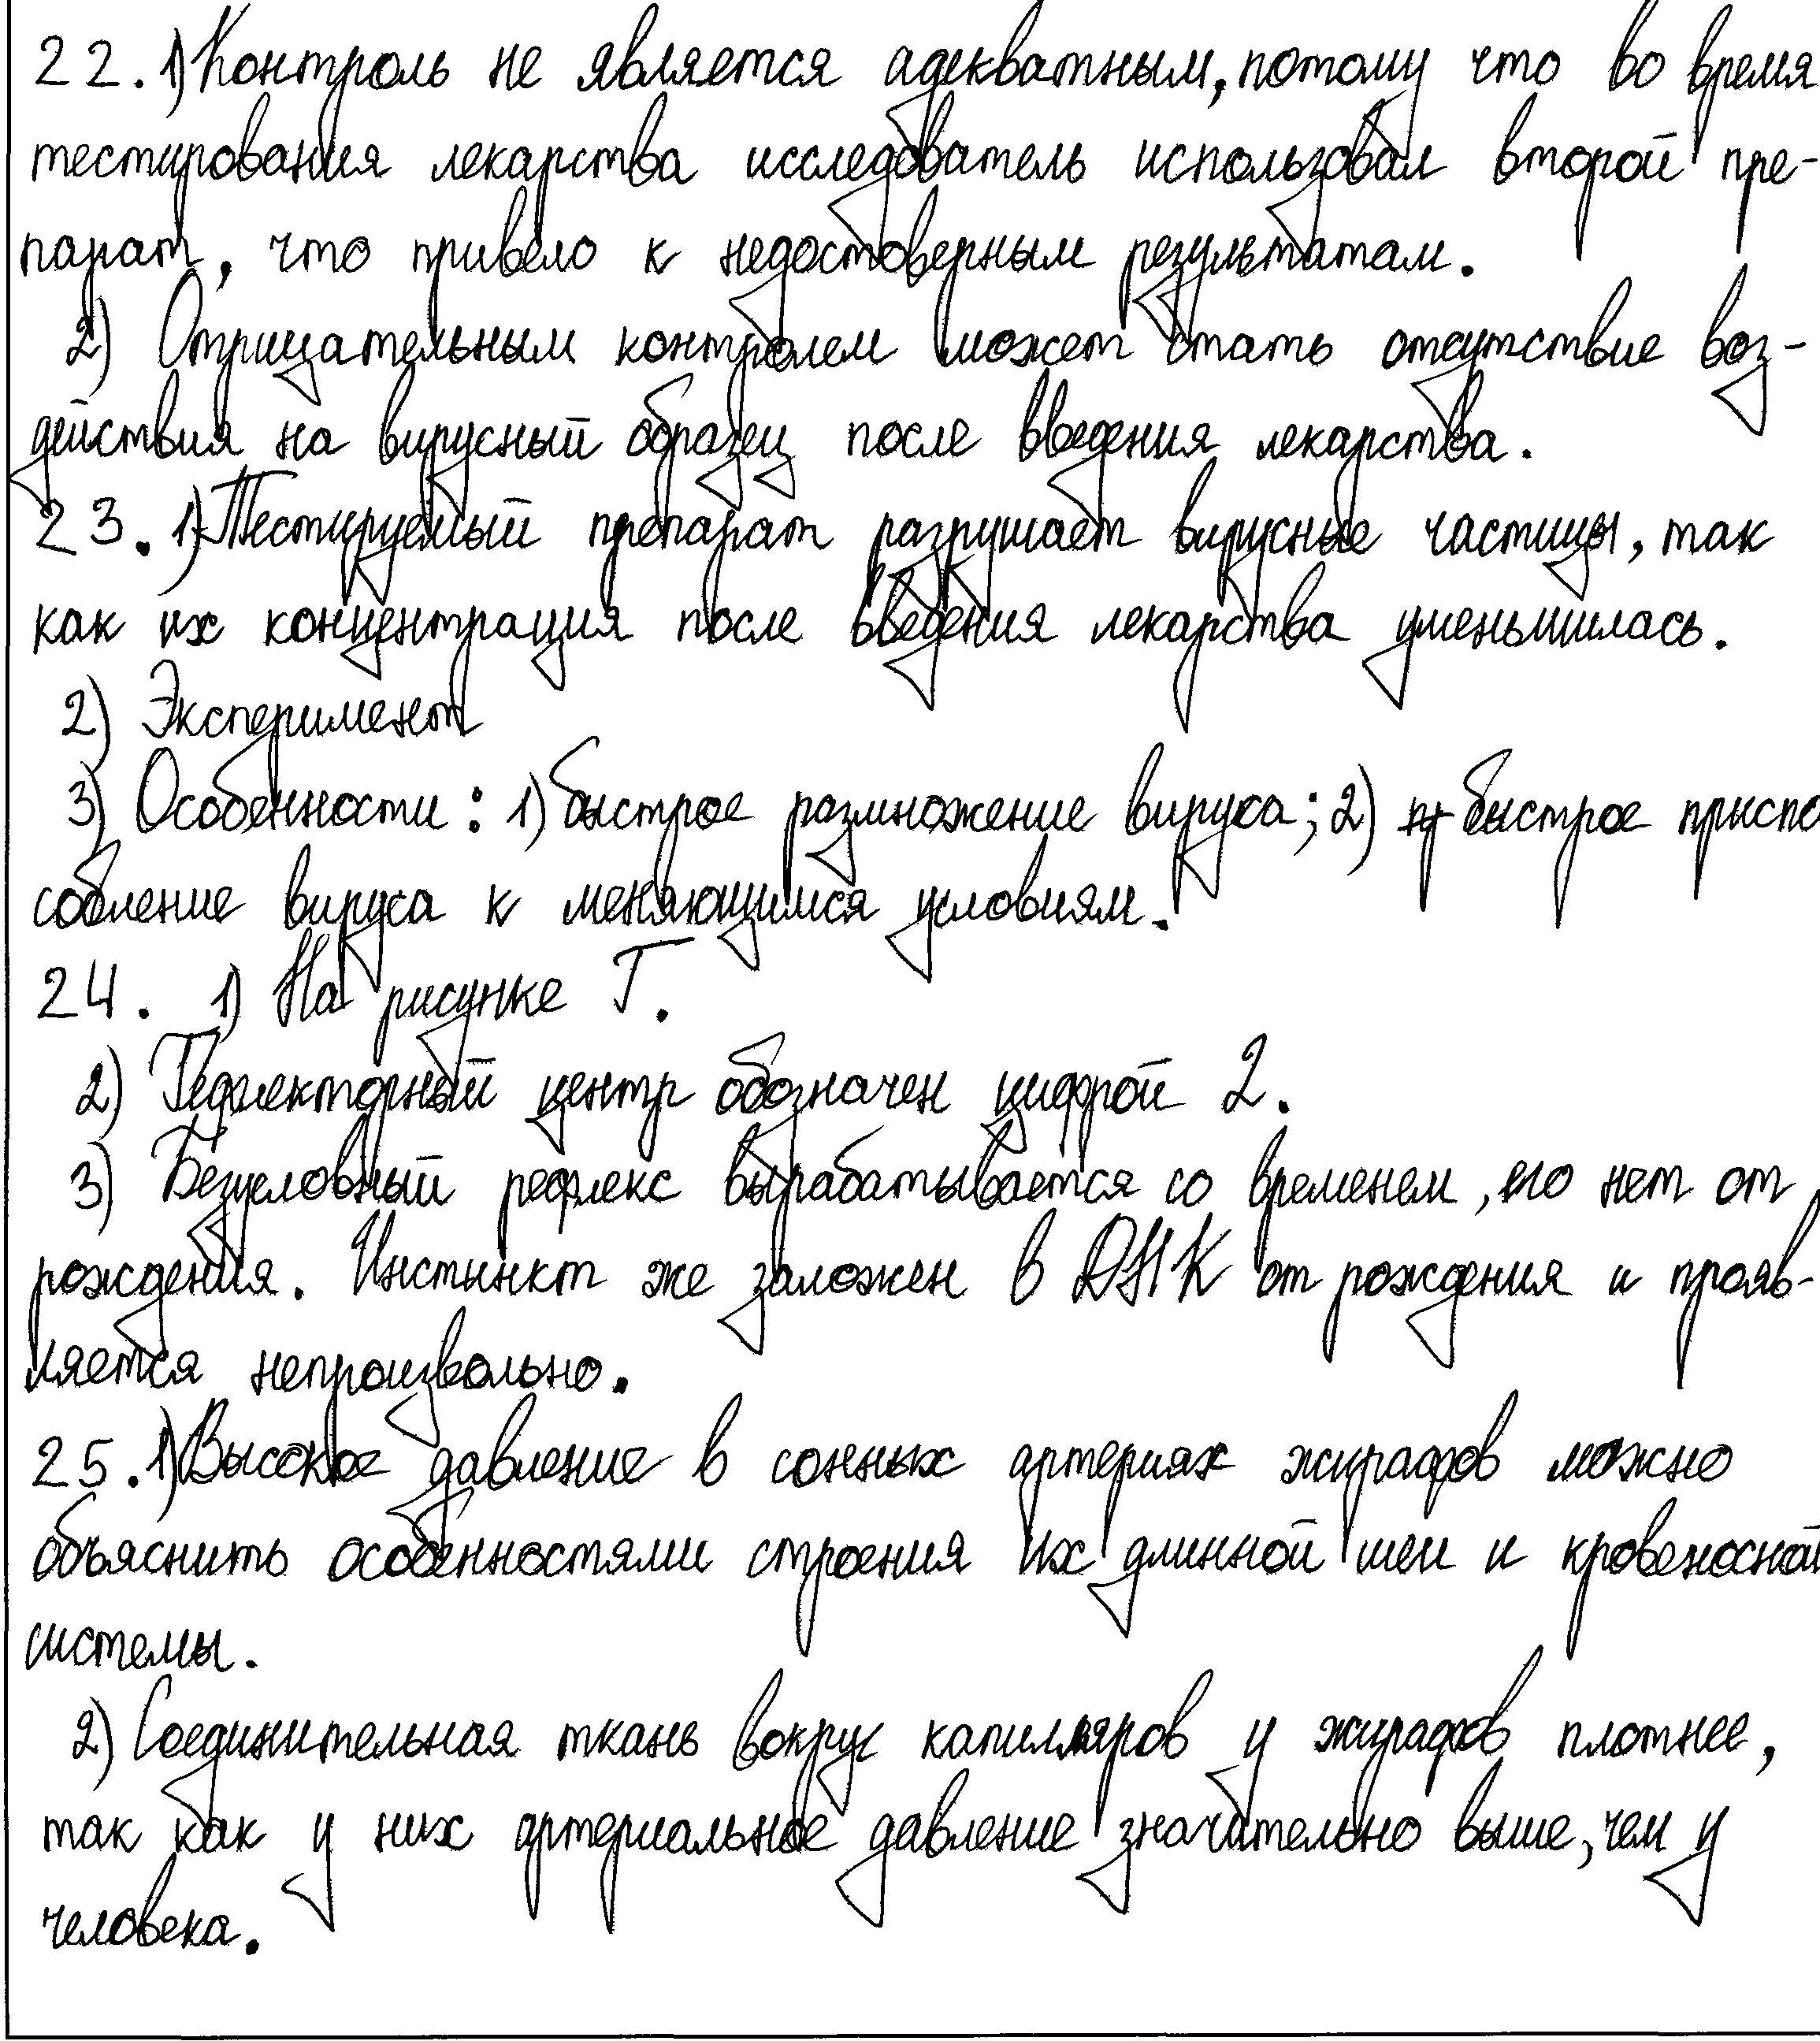 22. 1) Контроль не является адекватным, потому что во время
тестирования лекарства исследователь использовал второй пре-
парат, что привело к недостоверным результатам.
2) Отрицательным контролем может стать отсутствие воз-
действия на вирусный образец после введения лекарства.
23. 1) Тестируемый препарат разрушает вирусные частицы, так
как их концентрация после введения лекарства уменьшилась.
2) Эксперимент
3) Особенности: 1) быстрое размножение вируса; 2) быстрое приспо
собление вируса к меняющимся условиям.
24. 1) На рисунке Г.
2) Рефлекторный центр обозначен цифрой 2.
3) Безусловный рефлекс вырабатывается со временем, его нет от
рождения. Инстинкт же заложен в ДНК от рождения и прояв-
ляется непроизвольно.
25. 1) Высокое давление в сонных артериях жирафов можно
объяснить особенностями строения их длинной шеи и кровеносной
системы.
2) Соединительная ткань вокруг капилляров у жирафов плотнее,
так как у них артериальное давление значительно выше, чем у
человека.